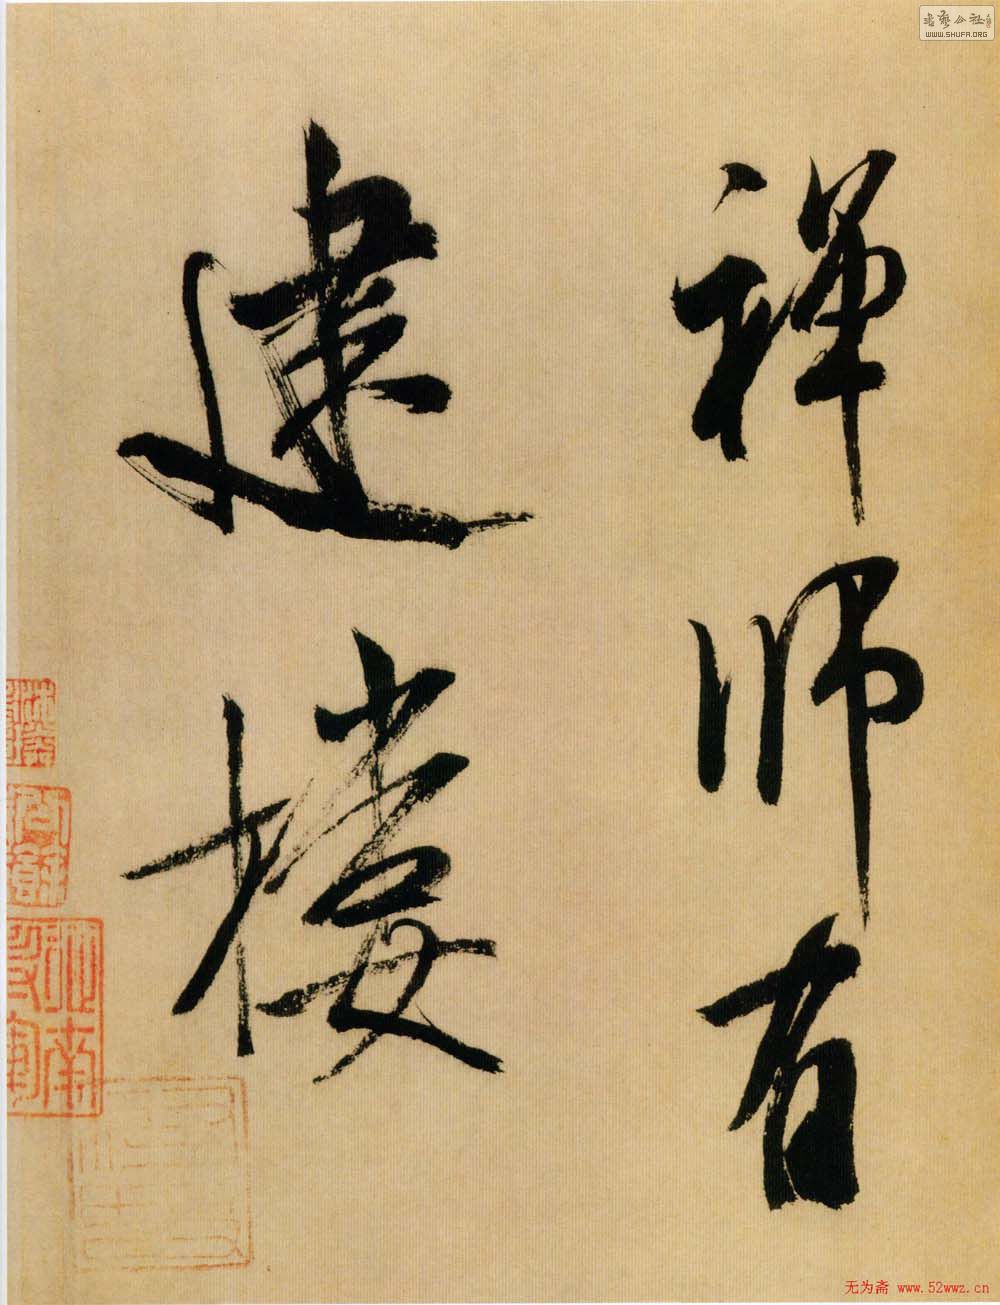 書藝公社
WWW.SHUFA.ORG
禪師有
建樓
无为斋 www.52wwz.cn